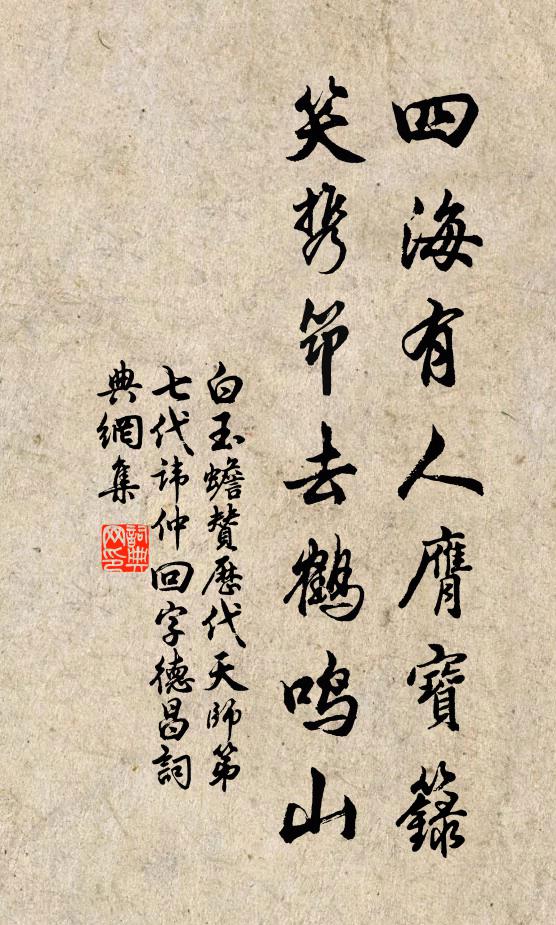 四海有人膺寶籙
笑携笻去鶴鳴山
白玉蟾贊歷代天師第
七代諱仲回字德昌詞
典網集
詞典
网印